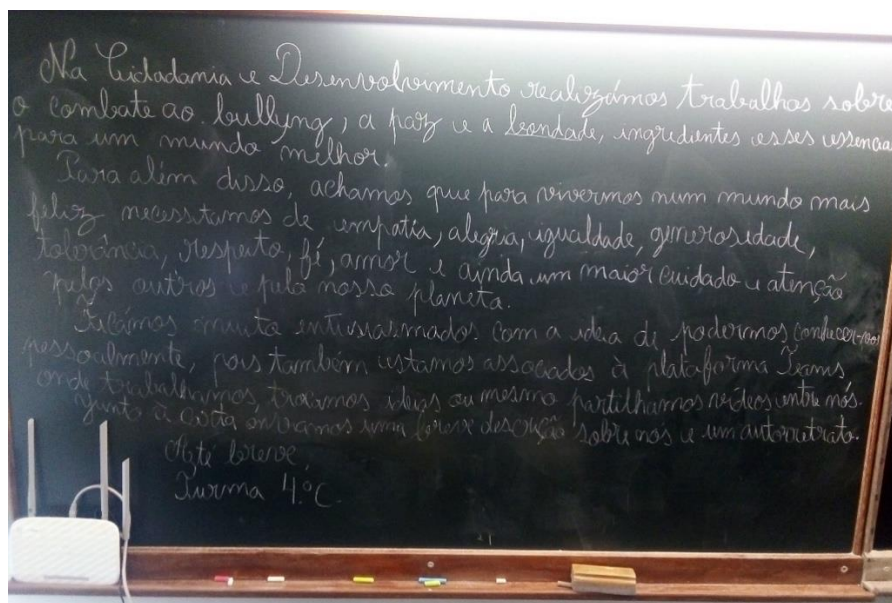 Na Cidadania e Desenvolvimento realizámos trabalhos sobre
o combate ao bullyng, a paz e a bondade, ingredientes esses essenciai
para um mundo melhor.
Para além disso, achamos que para vivermos num mundo mais
feliz necessitamos de empatia, alegria, igualdade, generosidade,
tolerância, respeito, fé, amor e ainda um maior cuidado e atenção
pelos outros e pelo nosso planeta.
Ficámos muito entusiasmados com a ideia de podermos conhecer-vos
pessoalmente, pois também estamos associados à plataforma Teams,
onde trabalhamos, trocamos ideias ou mesmo partilhamos vídeos entre nós.
Junto à carta enviamos uma breve descrição sobre nós e um autorretrato.
Até breve,
Turma 4.ºC